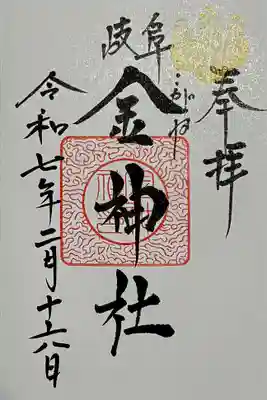 奉拝
岐阜
こがね
金神社
令和七年二月十六日